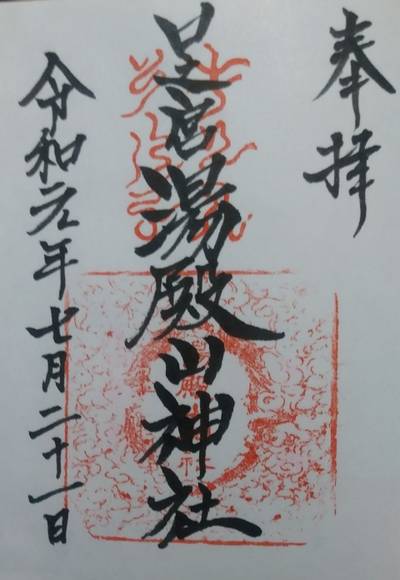 奉拝
里之宮湯殿山神社
令和元年七月二十一日